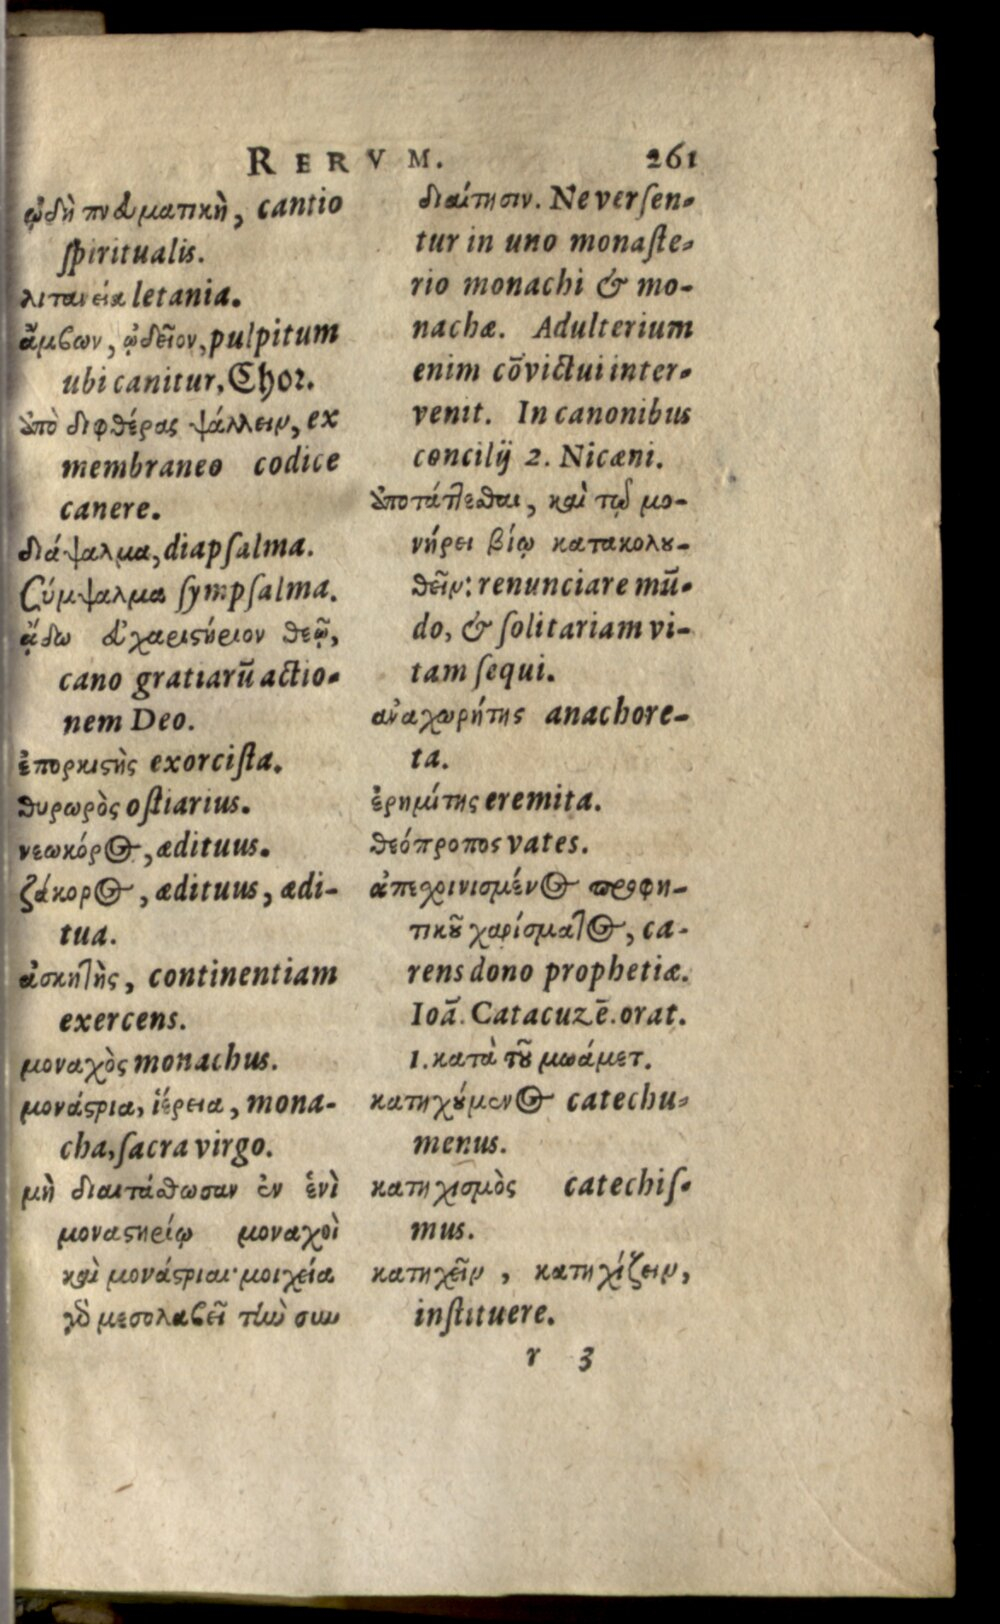 RERVM. 261
ᾠδὴ πνευματικὴ, cantio
ſpiritualis.
λιτανεία letania.
ἄμβων, ᾠδεῖον, pulpitum
ubi canitur, Chor.
ὑπὸ διφθέρας ψάλλειν, ex
membraneo codice
canere.
διάψαλμα, diapſalma.
σύμψαλμα ſympſalma.
ᾄδω εὐχαριστήριον θεῷ,
cano gratiarũ actio-
nem Deo.
ἐπορκιστὴς exorciſta.
θυρωρὸς oſtiarius.
νεωκόρος, ædituus.
ζάκορος, ædituus, ædi-
tua.
ἀσκητὴς, continentiam
exercens.
μοναχὸς monachus.
μονάστρια, ἱέρεια, mona-
cha, ſacra virgo.
μὴ διαιτάσθωσαν ἐν ἑνὶ
μοναστηρίῳ μοναχοὶ
καὶ μονάστριαι· μοιχεία
γὸ μεσολαβεῖ τὴν συν
διαίτησιν. Ne verſen-
tur in uno monaſte-
rio monachi & mo-
nachæ. Adulterium
enim cõvictui inter-
venit. In canonibus
concilij 2. Nicæni.
ὑποτάττεσθαι, καὶ τῷ μο-
νήρει βίῳ κατακολου-
θεῖν: renunciare mũ-
do, & ſolitariam vi-
tam ſequi.
ἀναχωρήτης anachore-
ta.
ἐρημίτης eremita.
θεόπροπος vates.
ἀπεχρινισμένος προφη-
τικοῦ χαρίσματος, ca-
rens dono prophetiæ.
Ioã. Catacuzẽ. orat.
1. κατὰ τοῦ μωάμετ.
κατηχούμενος catechu-
menus.
κατηχισμὸς catechiſ-
mus.
κατηχεῖν, κατηχίζειν,
inſtituere.
r 3